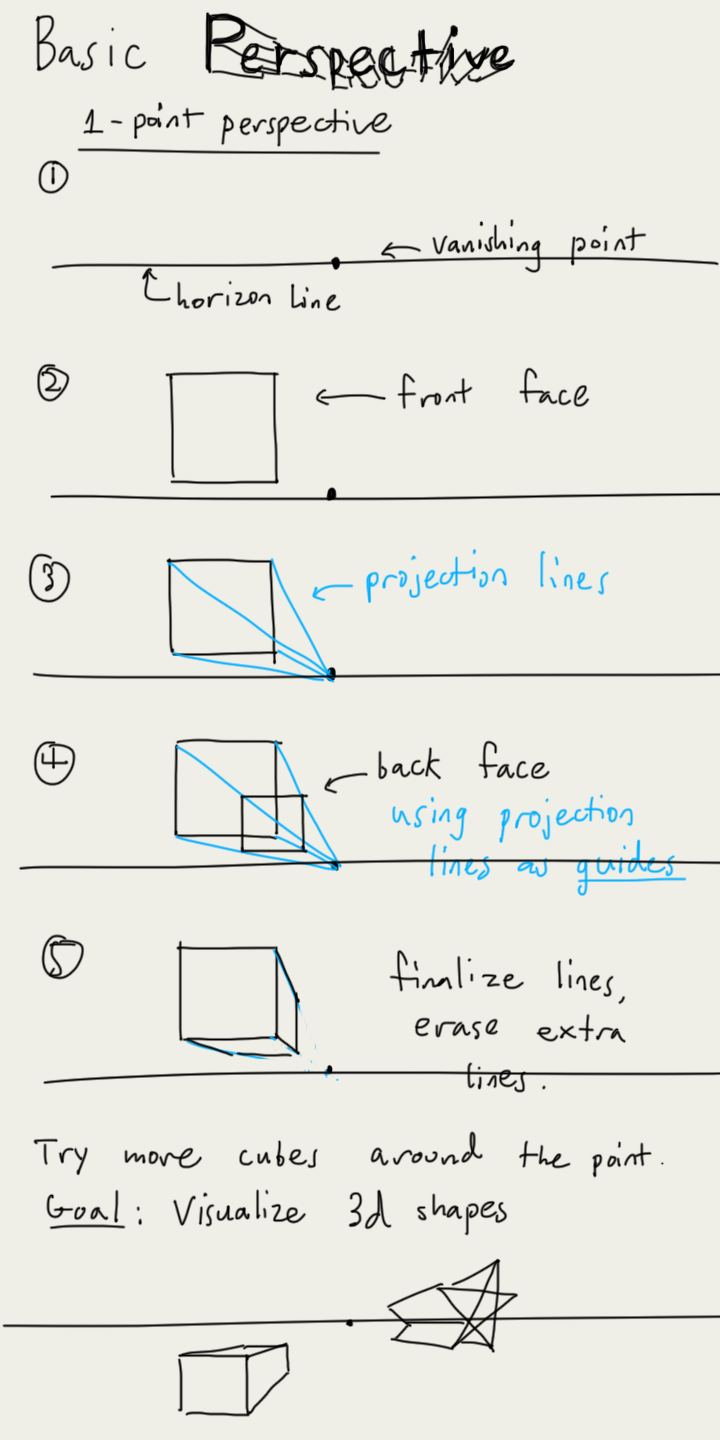 Basic Perspective
1-point perspective
①
vanishing point
horizon line
②
front face
③
projection lines
④
back face
using projection
lines as guides
⑤
finalize lines,
erase extra
lines.
Try more cubes around the point.
Goal: Visualize 3d shapes